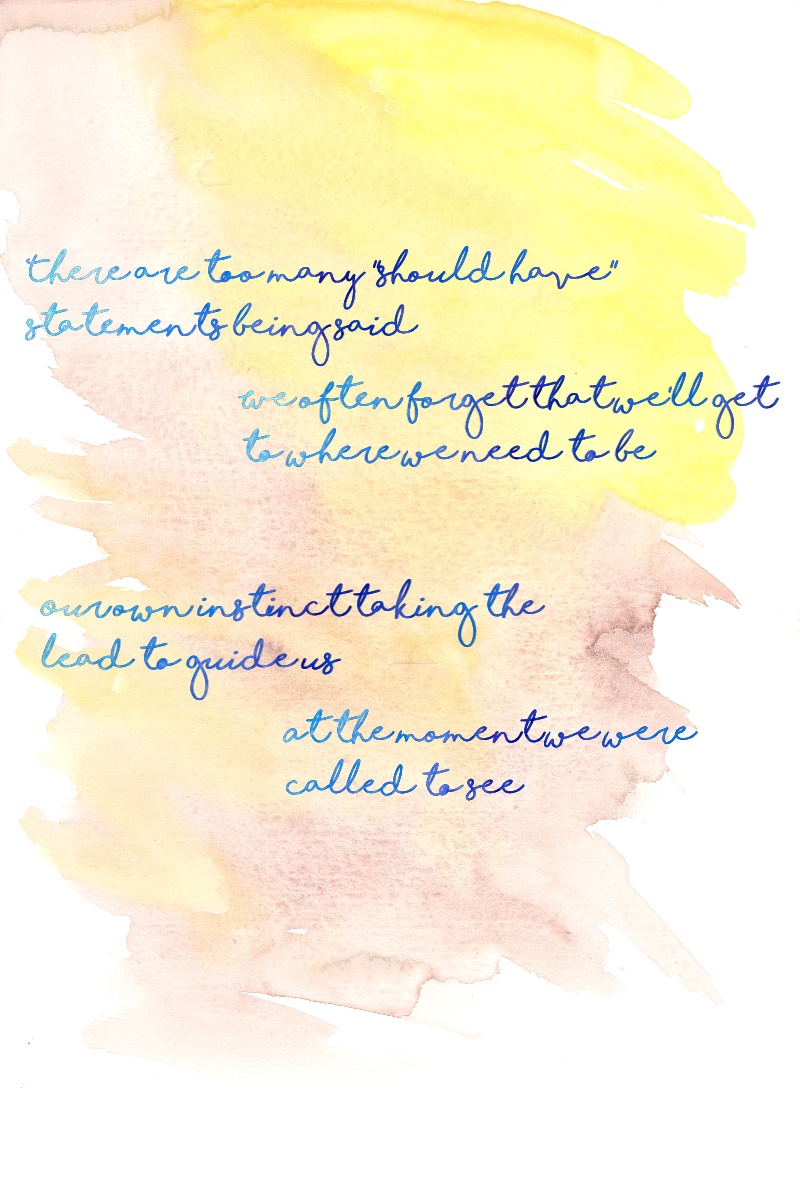 there are too many "should have"
statements being said
we often forget that we'll get
to where we need to be
our own instinct taking the
lead to guide us
at the moment we were
called to see